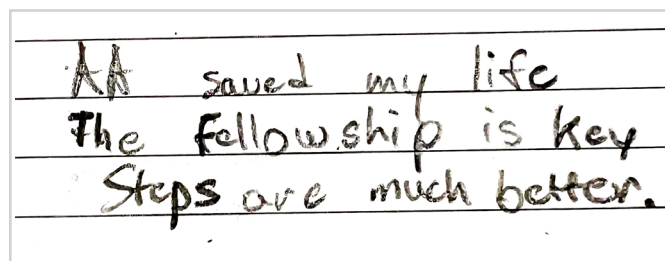 AA saved my life
The Fellowship is key
Steps are much better.